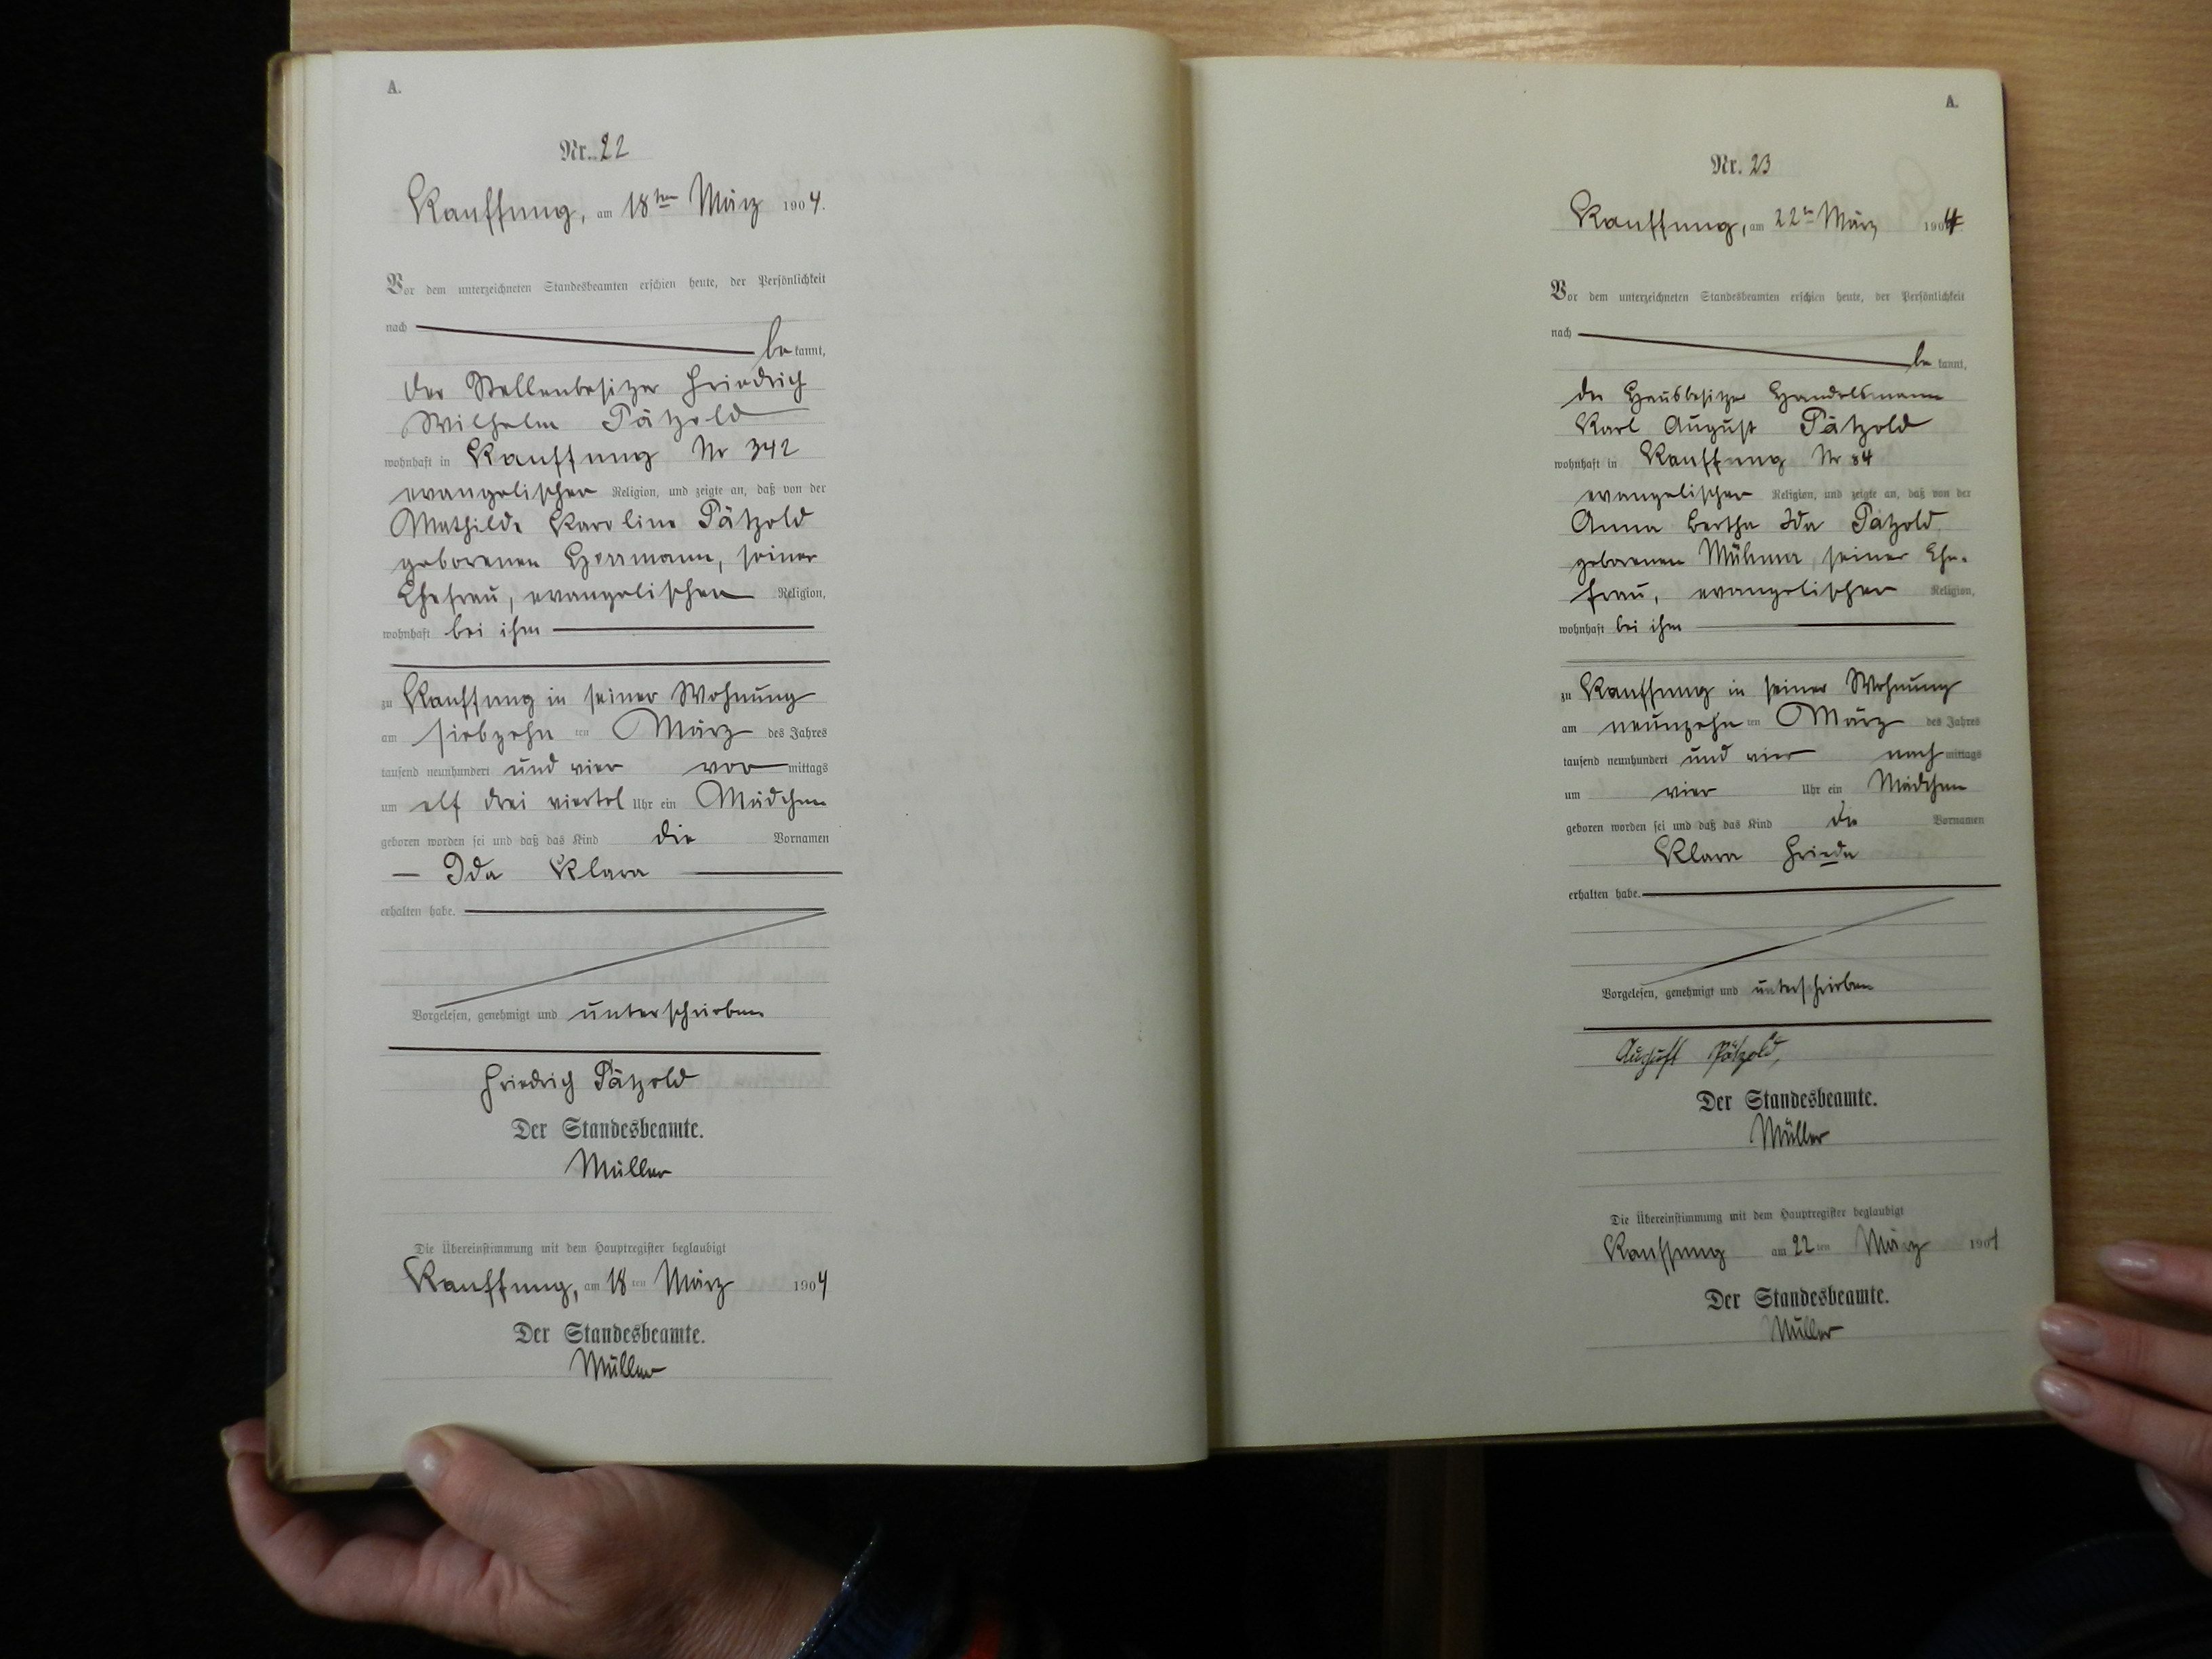 A.
Nr. 22
Kauffung, am 18ten März 1904.
Vor dem unterzeichneten Standesbeamten erschien heute, der Persönlichkeit
nach
be kannt,
der Stellenbesitzer Friedrich
Wilhelm Pätzold
wohnhaft in Kauffung Nr 342
evangelischer Religion, und zeigte an, daß von der
Mathilde Karoline Pätzold
geborenen Herrmann, seiner
Ehefrau, evangelischen Religion,
wohnhaft bei ihm
zu Kauffung in seiner Wohnung
am siebzehn ten März des Jahres
tausend neunhundert und vier vor mittags
um elf drei viertel Uhr ein Mädchen
geboren worden sei und daß das Kind die Vornamen
Ida Klara
erhalten habe.
Vorgelesen, genehmigt und unterschrieben
Friedrich Pätzold
Der Standesbeamte.
Müller
Die Übereinstimmung mit dem Hauptregister beglaubigt
Kauffung, am 18 ten März 1904
Der Standesbeamte.
Müller
A.
Nr. 23
Kauffung, am 22ten März 1904
Vor dem unterzeichneten Standesbeamten erschien heute, der Persönlichkeit
nach
be kannt,
der Hausbesitzer Handelsmann
Karl August Pätzold
wohnhaft in Kauffung Nr 84
evangelischer Religion, und zeigte an, daß von der
Anna Bertha Ida Pätzold,
geborenen seiner Ehe-
frau, evangelischer Religion,
wohnhaft bei ihm
zu Kauffung in seiner Wohnung
am neunzehn ten März des Jahres
tausend neunhundert und vier nach mittags
um vier Uhr ein Mädchen
geboren worden sei und daß das Kind die Vornamen
Klara Frieda
erhalten habe.
Vorgelesen, genehmigt und unterschrieben
August Pätzold,
Der Standesbeamte.
Müller
Die Übereinstimmung mit dem Hauptregister beglaubigt
Kauffung am 22 ten März 1904
Der Standesbeamte.
Müller